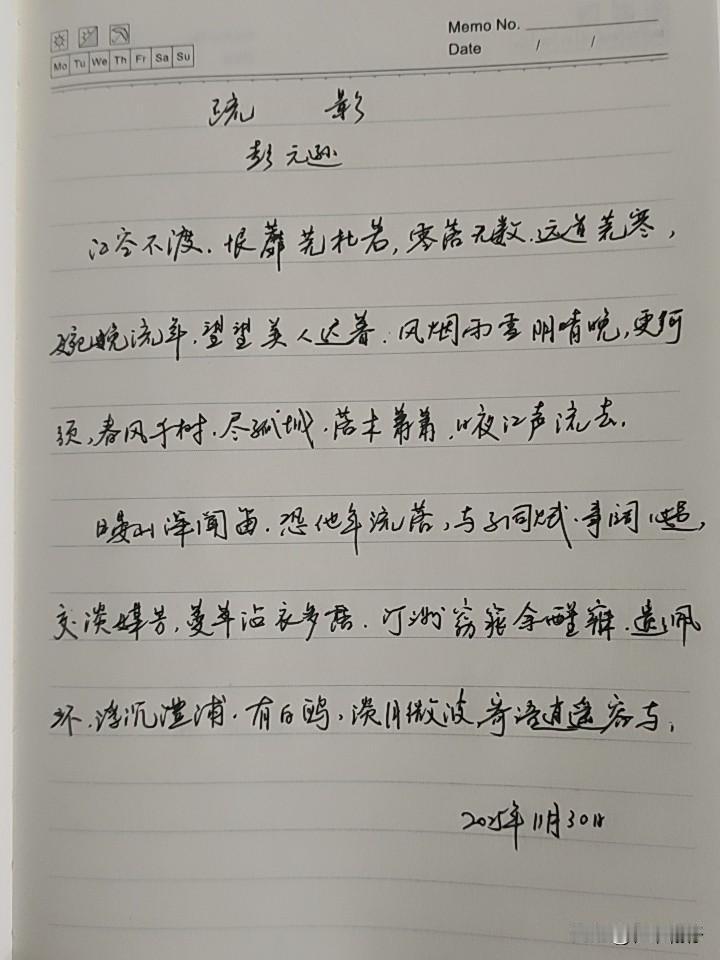 Memo No.
Mo Tu We Th Fr Sa Su
Date / /
疏 影
彭元逊
江空不渡.恨蘼芜杜若,零落无数.远道荒寒,
婉娩流年.望望美人迟暮.风烟雨雪阴晴晚,更何
须,春风千树.尽孤城.落木萧萧,日夜江声流去.
日晏山深闻笛.恐他年流落,与子同赋.事阔心违,
交淡媒劳,蔓草沾衣多露.汀洲窈窕余醒寐.遗佩
环.浮沉澧浦.有白鸥,淡月微波,寄语逍遥容与,
2025年11月30日